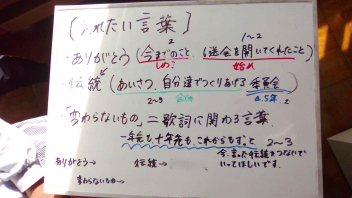 [ ふれたい言葉 ]
2 1〜2
・ありがとう (今までのこと 6送会を開いてくれたこと)
しめに 始め
・伝統 (あいさつ、自分達でつくりあげる 委員会)
2〜3 4.5年. 2
・「変わらないもの」 = 歌詞に関わる言葉.
一年先も十年先も、これからもずっと 2〜3
今言った伝統をつないで
いってほしいです。
ありがとう→ 伝統→
変わらないもの→